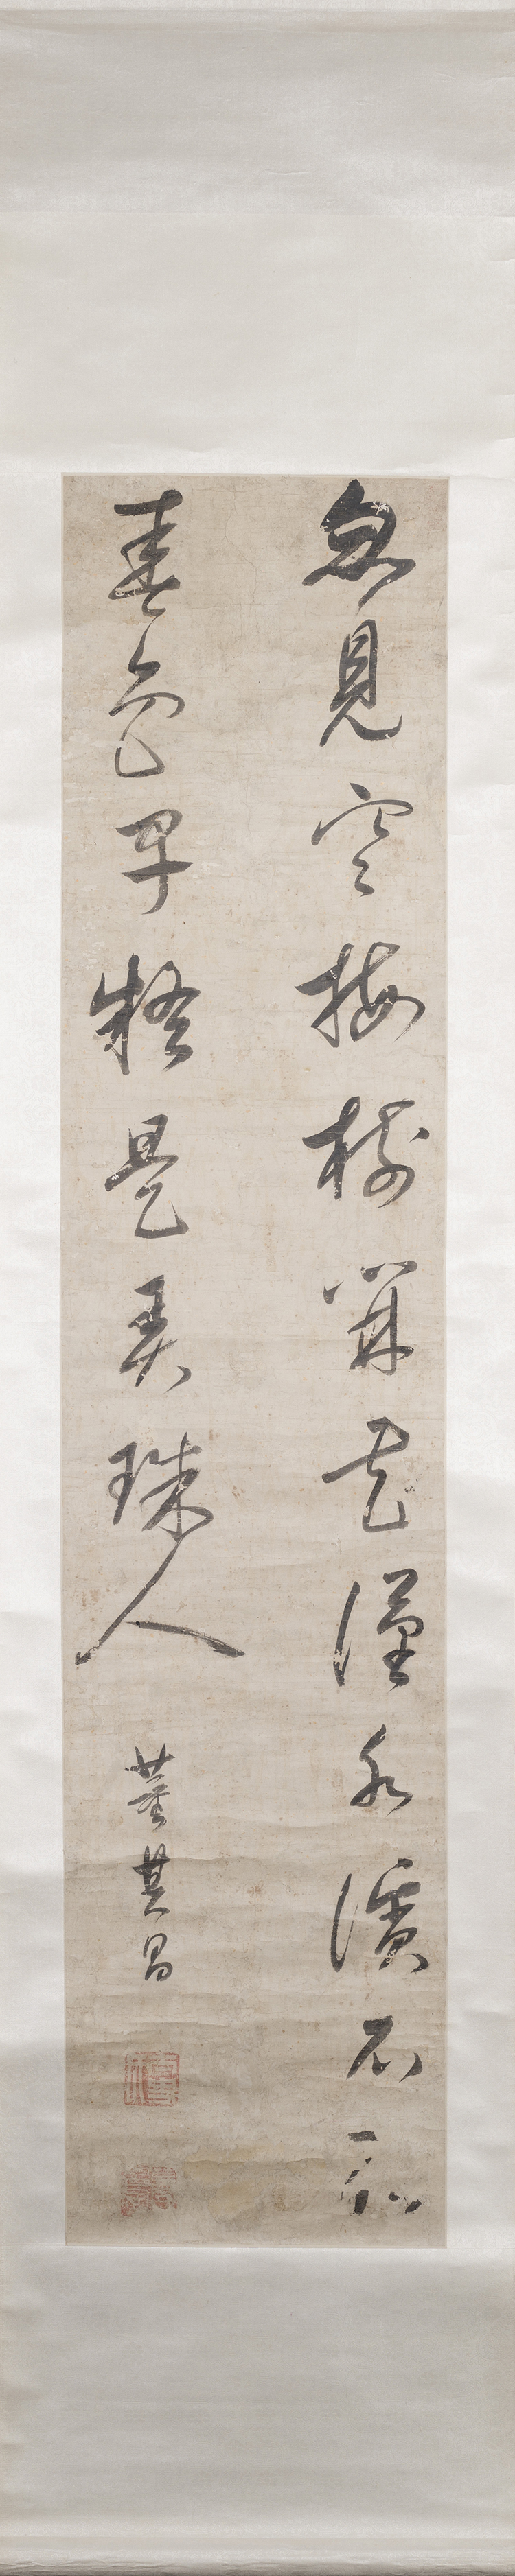 忽見寒梅樹開花漢水濱不知
春色早疑是弄珠人
董其昌